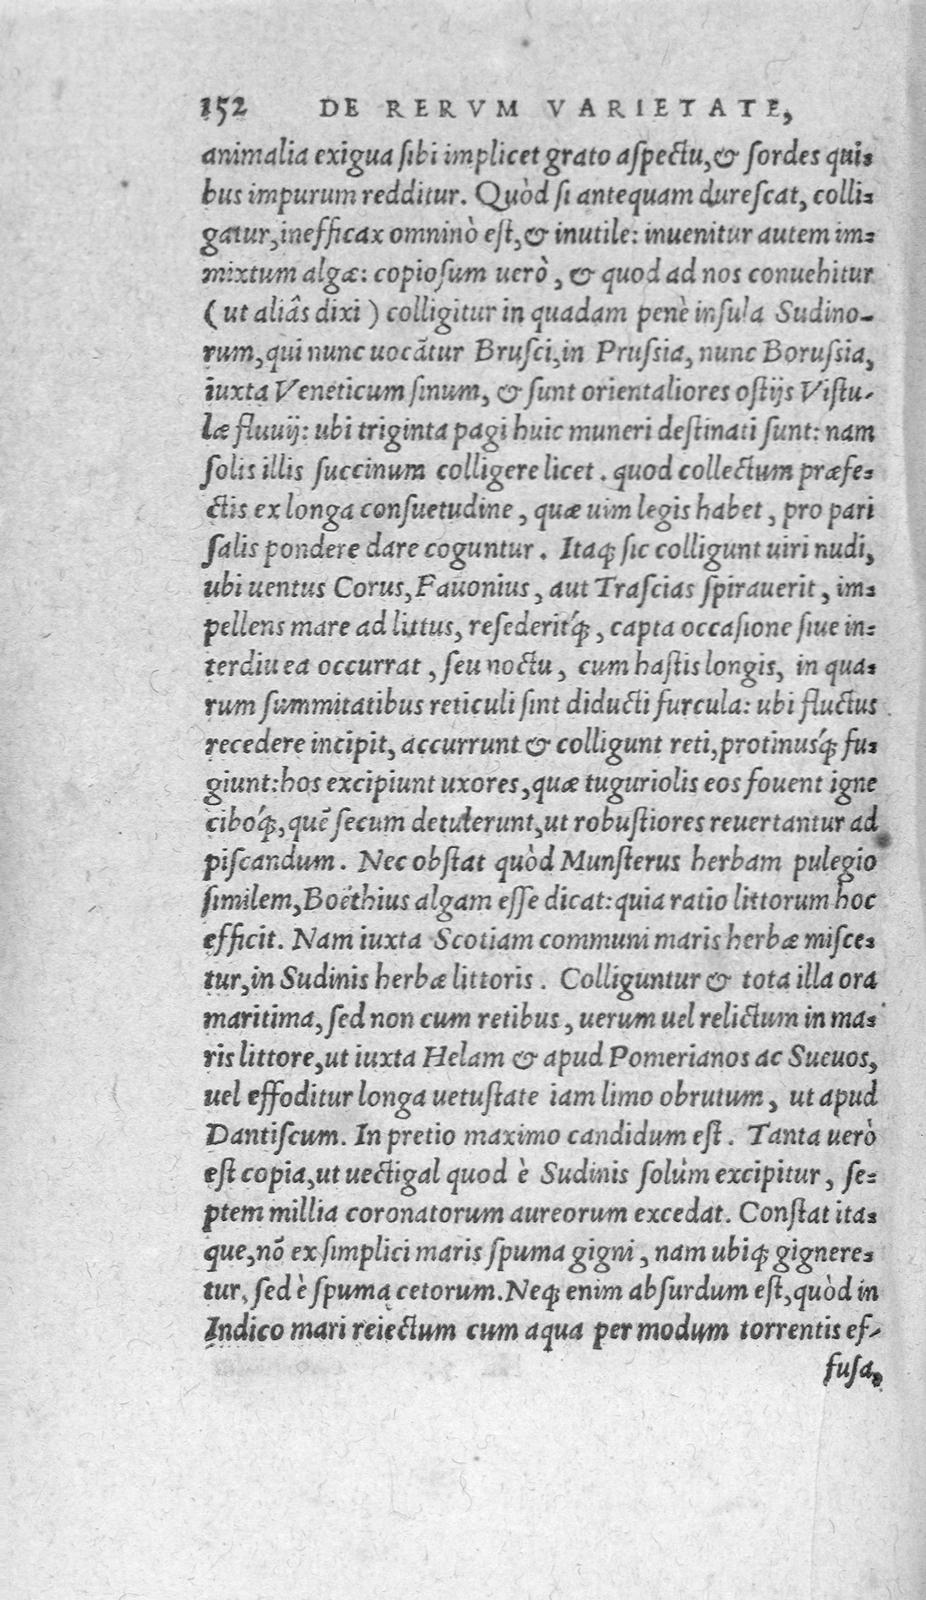 152 DE RERVM VARIETATE,
animalia exigua sibi implicet grato aspectu, & sordes qui-
bus impurum redditur. Quòd si antequam durescat, colli-
gatur, inefficax omninò est, & inutile: inuenitur autem im-
mixtum algæ: copiosum uerò, & quod ad nos conuehitur
(ut aliâs dixi) colligitur in quadam penè insula Sudino-
rum, qui nunc uocãtur Brusci, in Prussia, nunc Borussia,
iuxta Veneticum sinum, & sunt orientaliores ostijs Vistu-
læ fluuij: ubi triginta pagi huic muneri destinati sunt: nam
solis illis succinum colligere licet. quod collectum præfe-
ctis ex longa consuetudine, quæ uim legis habet, pro pari
salis pondere dare coguntur. Itaq; sic colligunt uiri nudi,
ubi uentus Corus, Fauonius, aut Trascias spirauerit, im-
pellens mare ad littus, resederitq́;, capta occasione siue in-
terdiu ea occurrat, seu noctu, cum hastis longis, in qua-
rum summitatibus reticuli sint diducti furcula: ubi fluctus
recedere incipit, accurrunt & colligunt reti, protinusq́; fu-
giunt: hos excipiunt uxores, quæ tuguriolis eos fouent igne
ciboq́;, quẽ secum detulerunt, ut robustiores reuertantur ad
piscandum. Nec obstat quòd Munsterus herbam pulegio
similem, Boëthius algam esse dicat: quia ratio littorum hoc
efficit. Nam iuxta Scotiam communi maris herbæ misce-
tur, in Sudinis herbæ littoris. Colliguntur & tota illa ora
maritima, sed non cum retibus, uerum uel relictum in ma-
ris littore, ut iuxta Helam & apud Pomerianos ac Sueuos,
uel effoditur longa uetustate iam limo obrutum, ut apud
Dantiscum. In pretio maximo candidum est. Tanta uerò
est copia, ut uectigal quod è Sudinis solùm excipitur, se-
ptem millia coronatorum aureorum excedat. Constat ita-
que, nõ ex simplici maris spuma gigni, nam ubiq; gignere-
tur, sed è spuma cetorum. Neq; enim absurdum est, quòd in
Indico mari reiectum cum aqua per modum torrentis ef-
fusa,